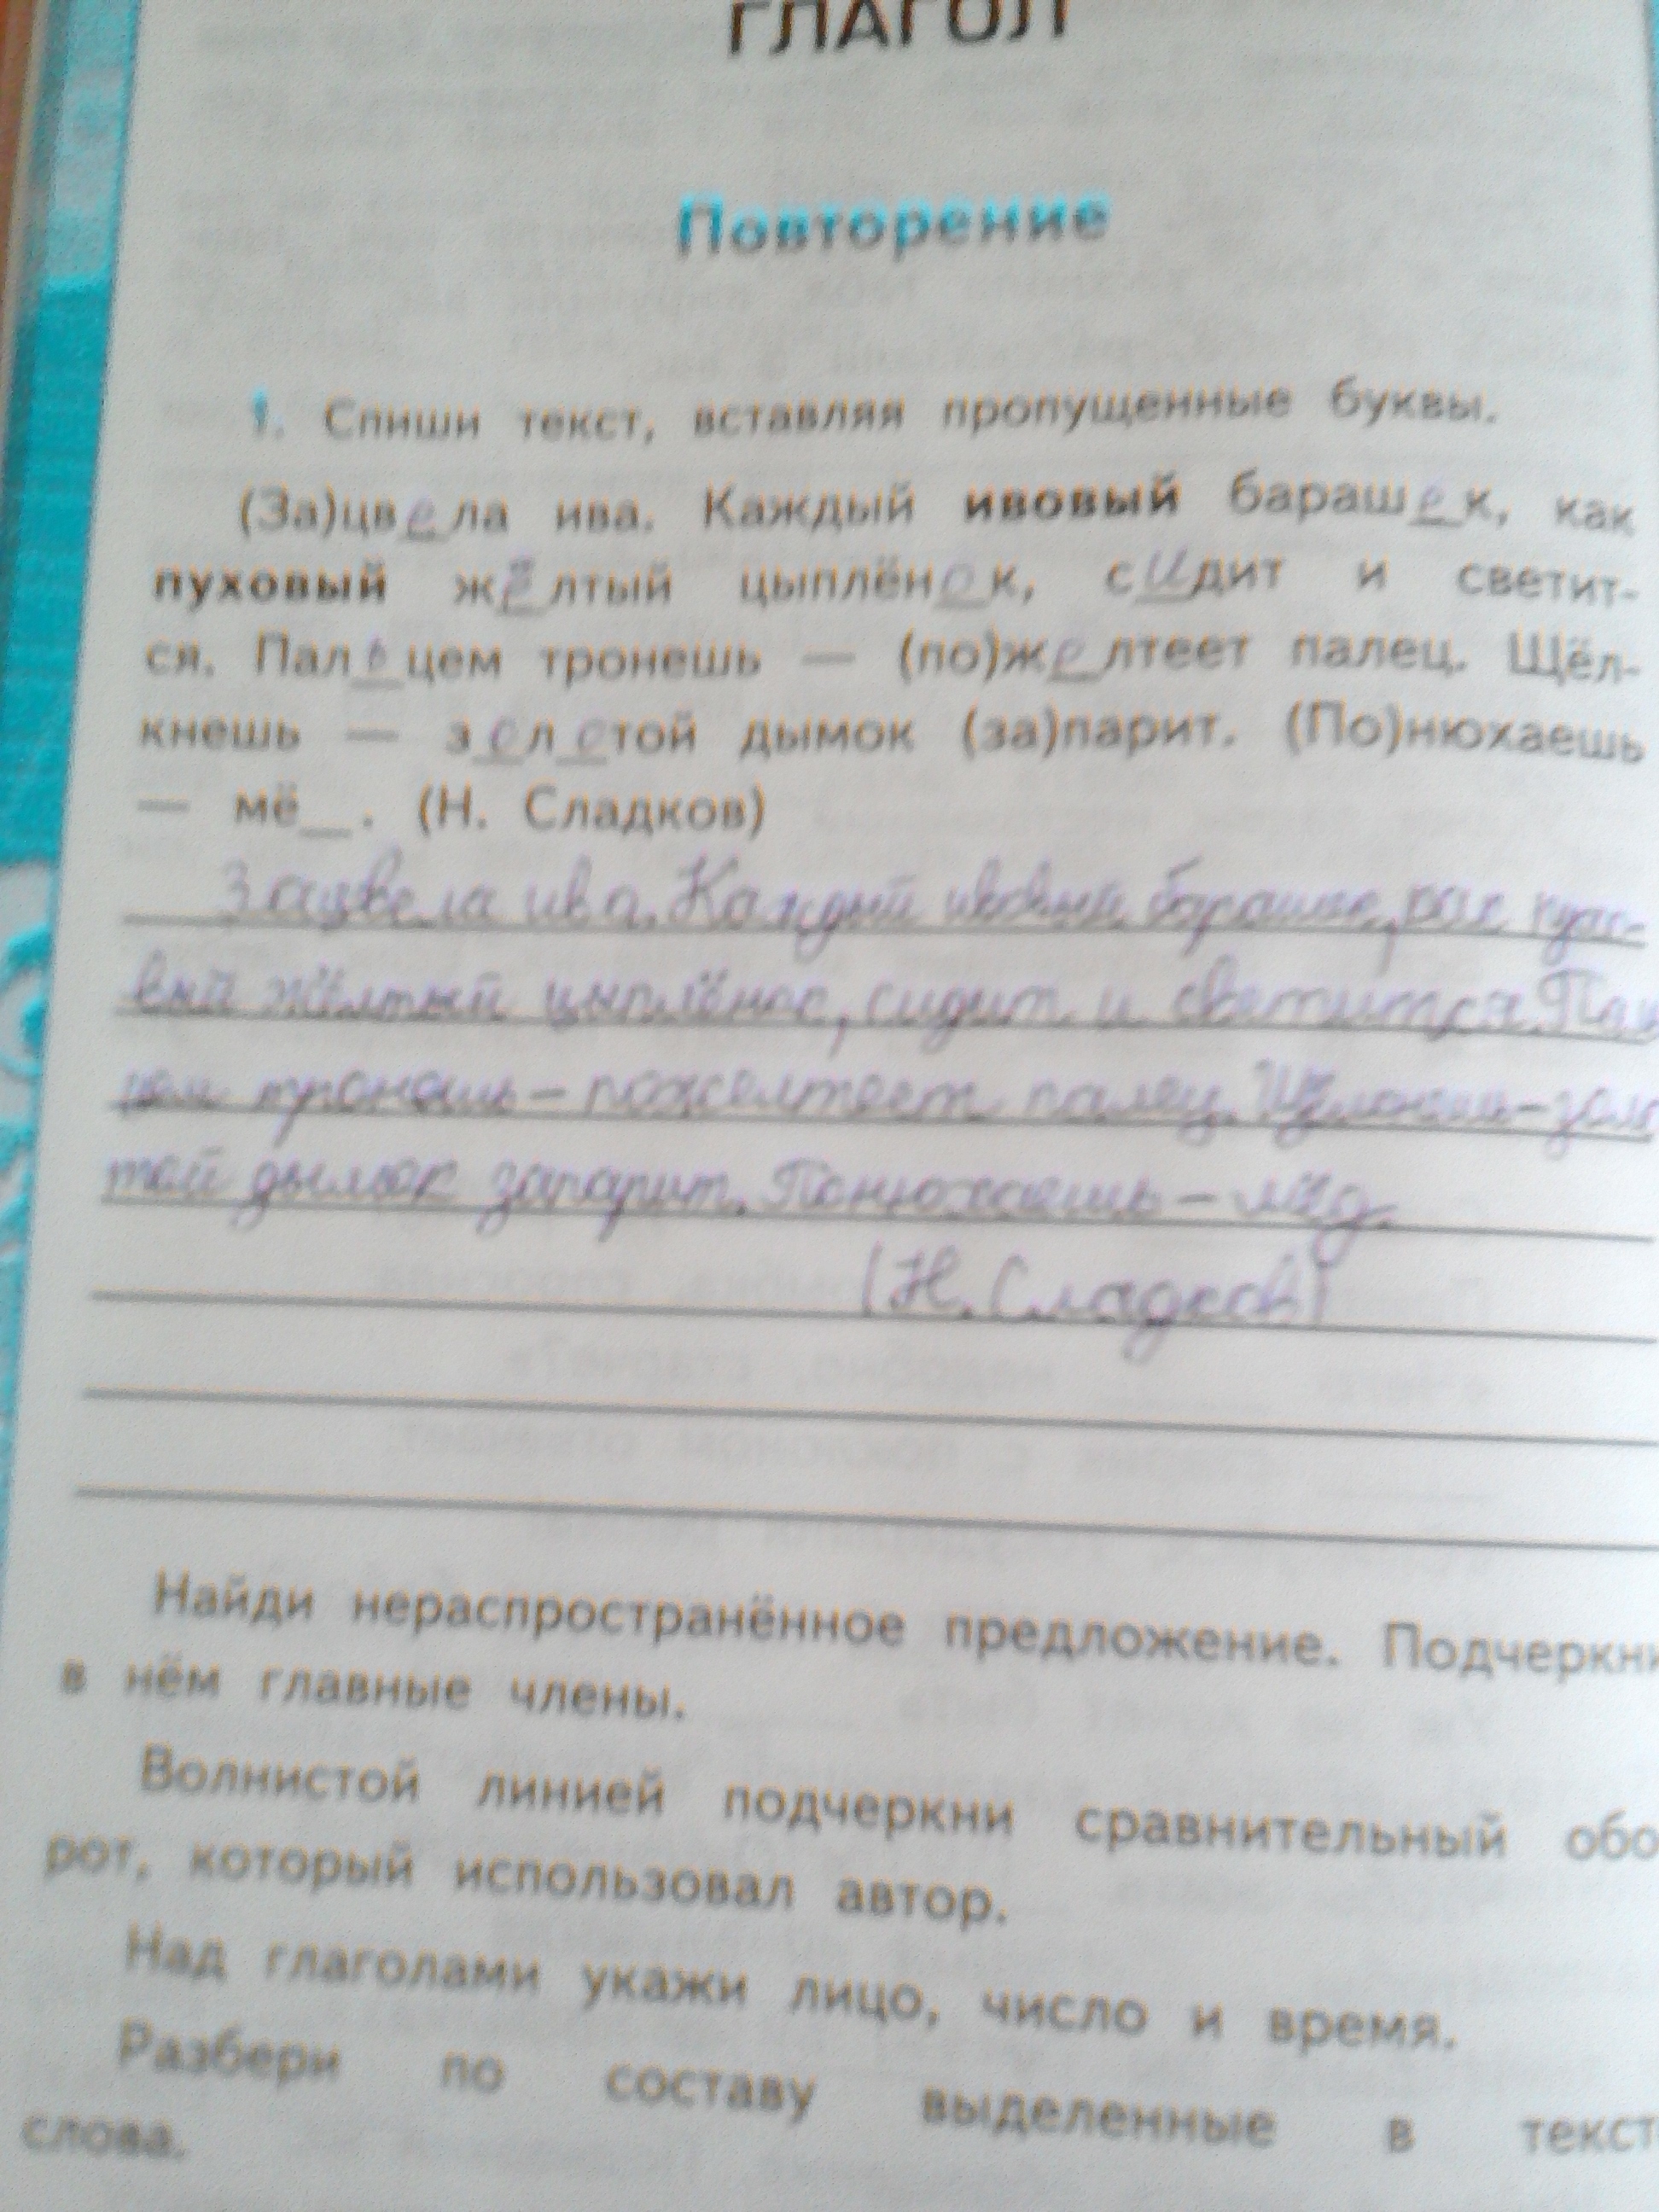 ГЛАГОЛ
Повторение
1. Спиши текст, вставляя пропущенные буквы.
(За)цвела ива. Каждый ивовый барашек, как
пуховый жёлтый цыплёнок, сидит и светит-
ся. Пальцем тронешь — (по)желтеет палец. Щёл-
кнешь — золотой дымок (за)парит. (По)нюхаешь
— мё_. (Н. Сладков)
Зацвела ива. Каждый ивовый барашек, как пухо-
вый жёлтый цыплёнок, сидит и светится. Паль
цем тронешь – пожелтеет палец. Щёлкнешь – золо
той дымок запарит. Понюхаешь – мёд.
(Н. Сладков)
Найди нераспространённое предложение. Подчеркни
в нём главные члены.
Волнистой линией подчеркни сравнительный обо
рот, который использовал автор.
Над глаголами укажи лицо, число и время.
Разбери по составу выделенные в текст
слова.